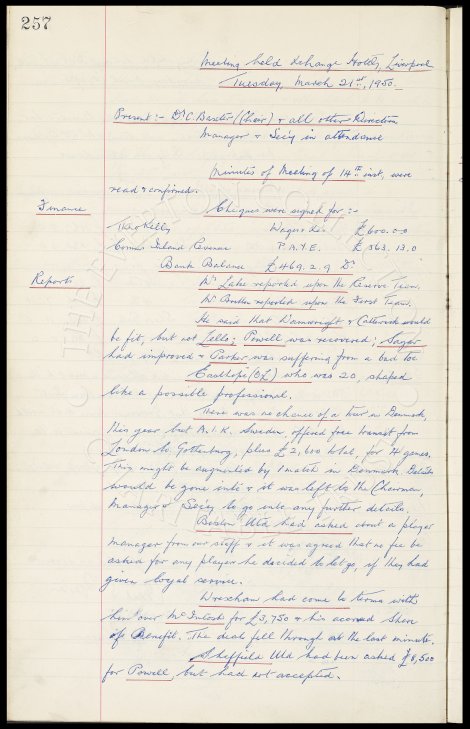 257
Meeting held Exchange Hotel, Liverpool
Tuesday, March 21st, 1950.
Present:- Dr C. Baxter (Chair) & all other Directors
Manager & Sec'y in attendance
Minutes of Meeting of 14th inst, were
read & confirmed.
Finance
Cheques were signed for :-
Theo Kelly Wages Etc. £600.0.0
Comm Inland Revenue P.A.Y.E. £363.13.0
Bank Balance £469.2.9 Dr.
Reports
Mr Lake reported upon the Reserve Team.
Mr Britton reported upon the First Team.
He said that Wainwright & Catterick would
be fit, but not Lello; Powell was recovered; Sagar
had improved & Parker was suffering from a bad toe.
Easthope (CF) who was 20, shaped
like a possible professional.
There was no chance of a tour in Denmark,
this year but A.I.K. Sweden, offered free transit from
London to Gothenburg, plus £2,600 total, for 4 games.
This might be augmented by 1 match in Denmark. Details
would be gone into & it was left to the Chairman,
Manager & Sec'y to go into any further details.
Boston Utd had asked about a player
manager from our staff & it was agreed that no fee be
asked for any player he decided to let go, if they had
given loyal service.
Wrexham had come to terms with
him over McIntosh for £3,750 & his accrued share
of Benefit. The deal fell through at the last minute.
Sheffield Utd had been asked £8,500
for Powell, but had not accepted.
THE EVERTON COLLECTION